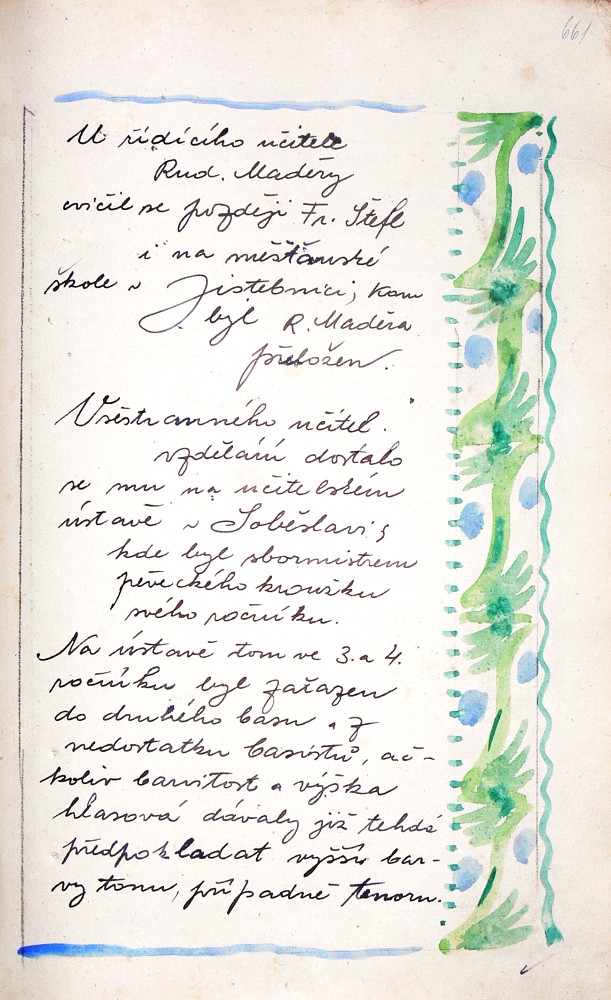 661
U řídícího učitele
Rud. Maděry
cvičil se později Fr. Štefl
i na měšťanské
škole v Jistebnici, kam
byl R. Maděra
přeložen.
Všestranného učitel.
vzdělání dostalo
se mu na učitelském
ústavě v Soběslavi,
kde byl sbormistrem
pěveckého kroužku
svého ročníku.
Na ústavě tom ve 3. a 4.
ročníku byl zařazen
do druhého basu z
nedostatku basistů, ač-
koliv barvitost a výška
hlasová dávaly již tehdá
předpokladat vyšší bar-
vy tonu, případně tenoru.